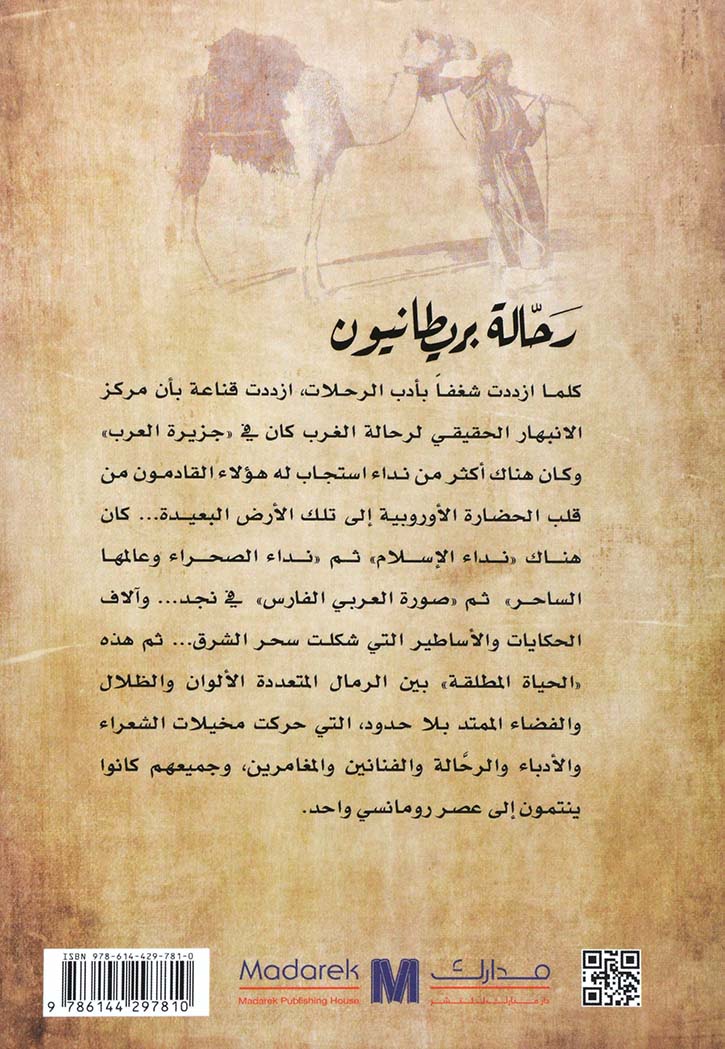 رحّالة بريطانيون
كلما ازددت شغفاً بأدب الرحلات، ازددت قناعة بأن مركز
الانبهار الحقيقي لرحالة الغرب كان في «جزيرة العرب»
وكان هناك أكثر من نداء استجاب له هؤلاء القادمون من
قلب الحضارة الأوروبية إلى تلك الأرض البعيدة... كان
هناك «نداء الإسلام» ثم «نداء الصحراء وعالمها
الساحر» ثم «صورة العربي الفارس» في نجد... وآلاف
الحكايات والأساطير التي شكلت سحر الشرق... ثم هذه
«الحياة المطلقة» بين الرمال المتعددة الألوان والظلال
والفضاء الممتد بلا حدود، التي حركت مخيلات الشعراء
والأدباء والرحَّالة والفنانين والمغامرين، وجميعهم كانوا
ينتمون إلى عصر رومانسي واحد.
ISBN 978-614-429-781-0
9 786144 297810
Madarek
Madarek Publishing House
M
مدارك
دار مدارك للنشر